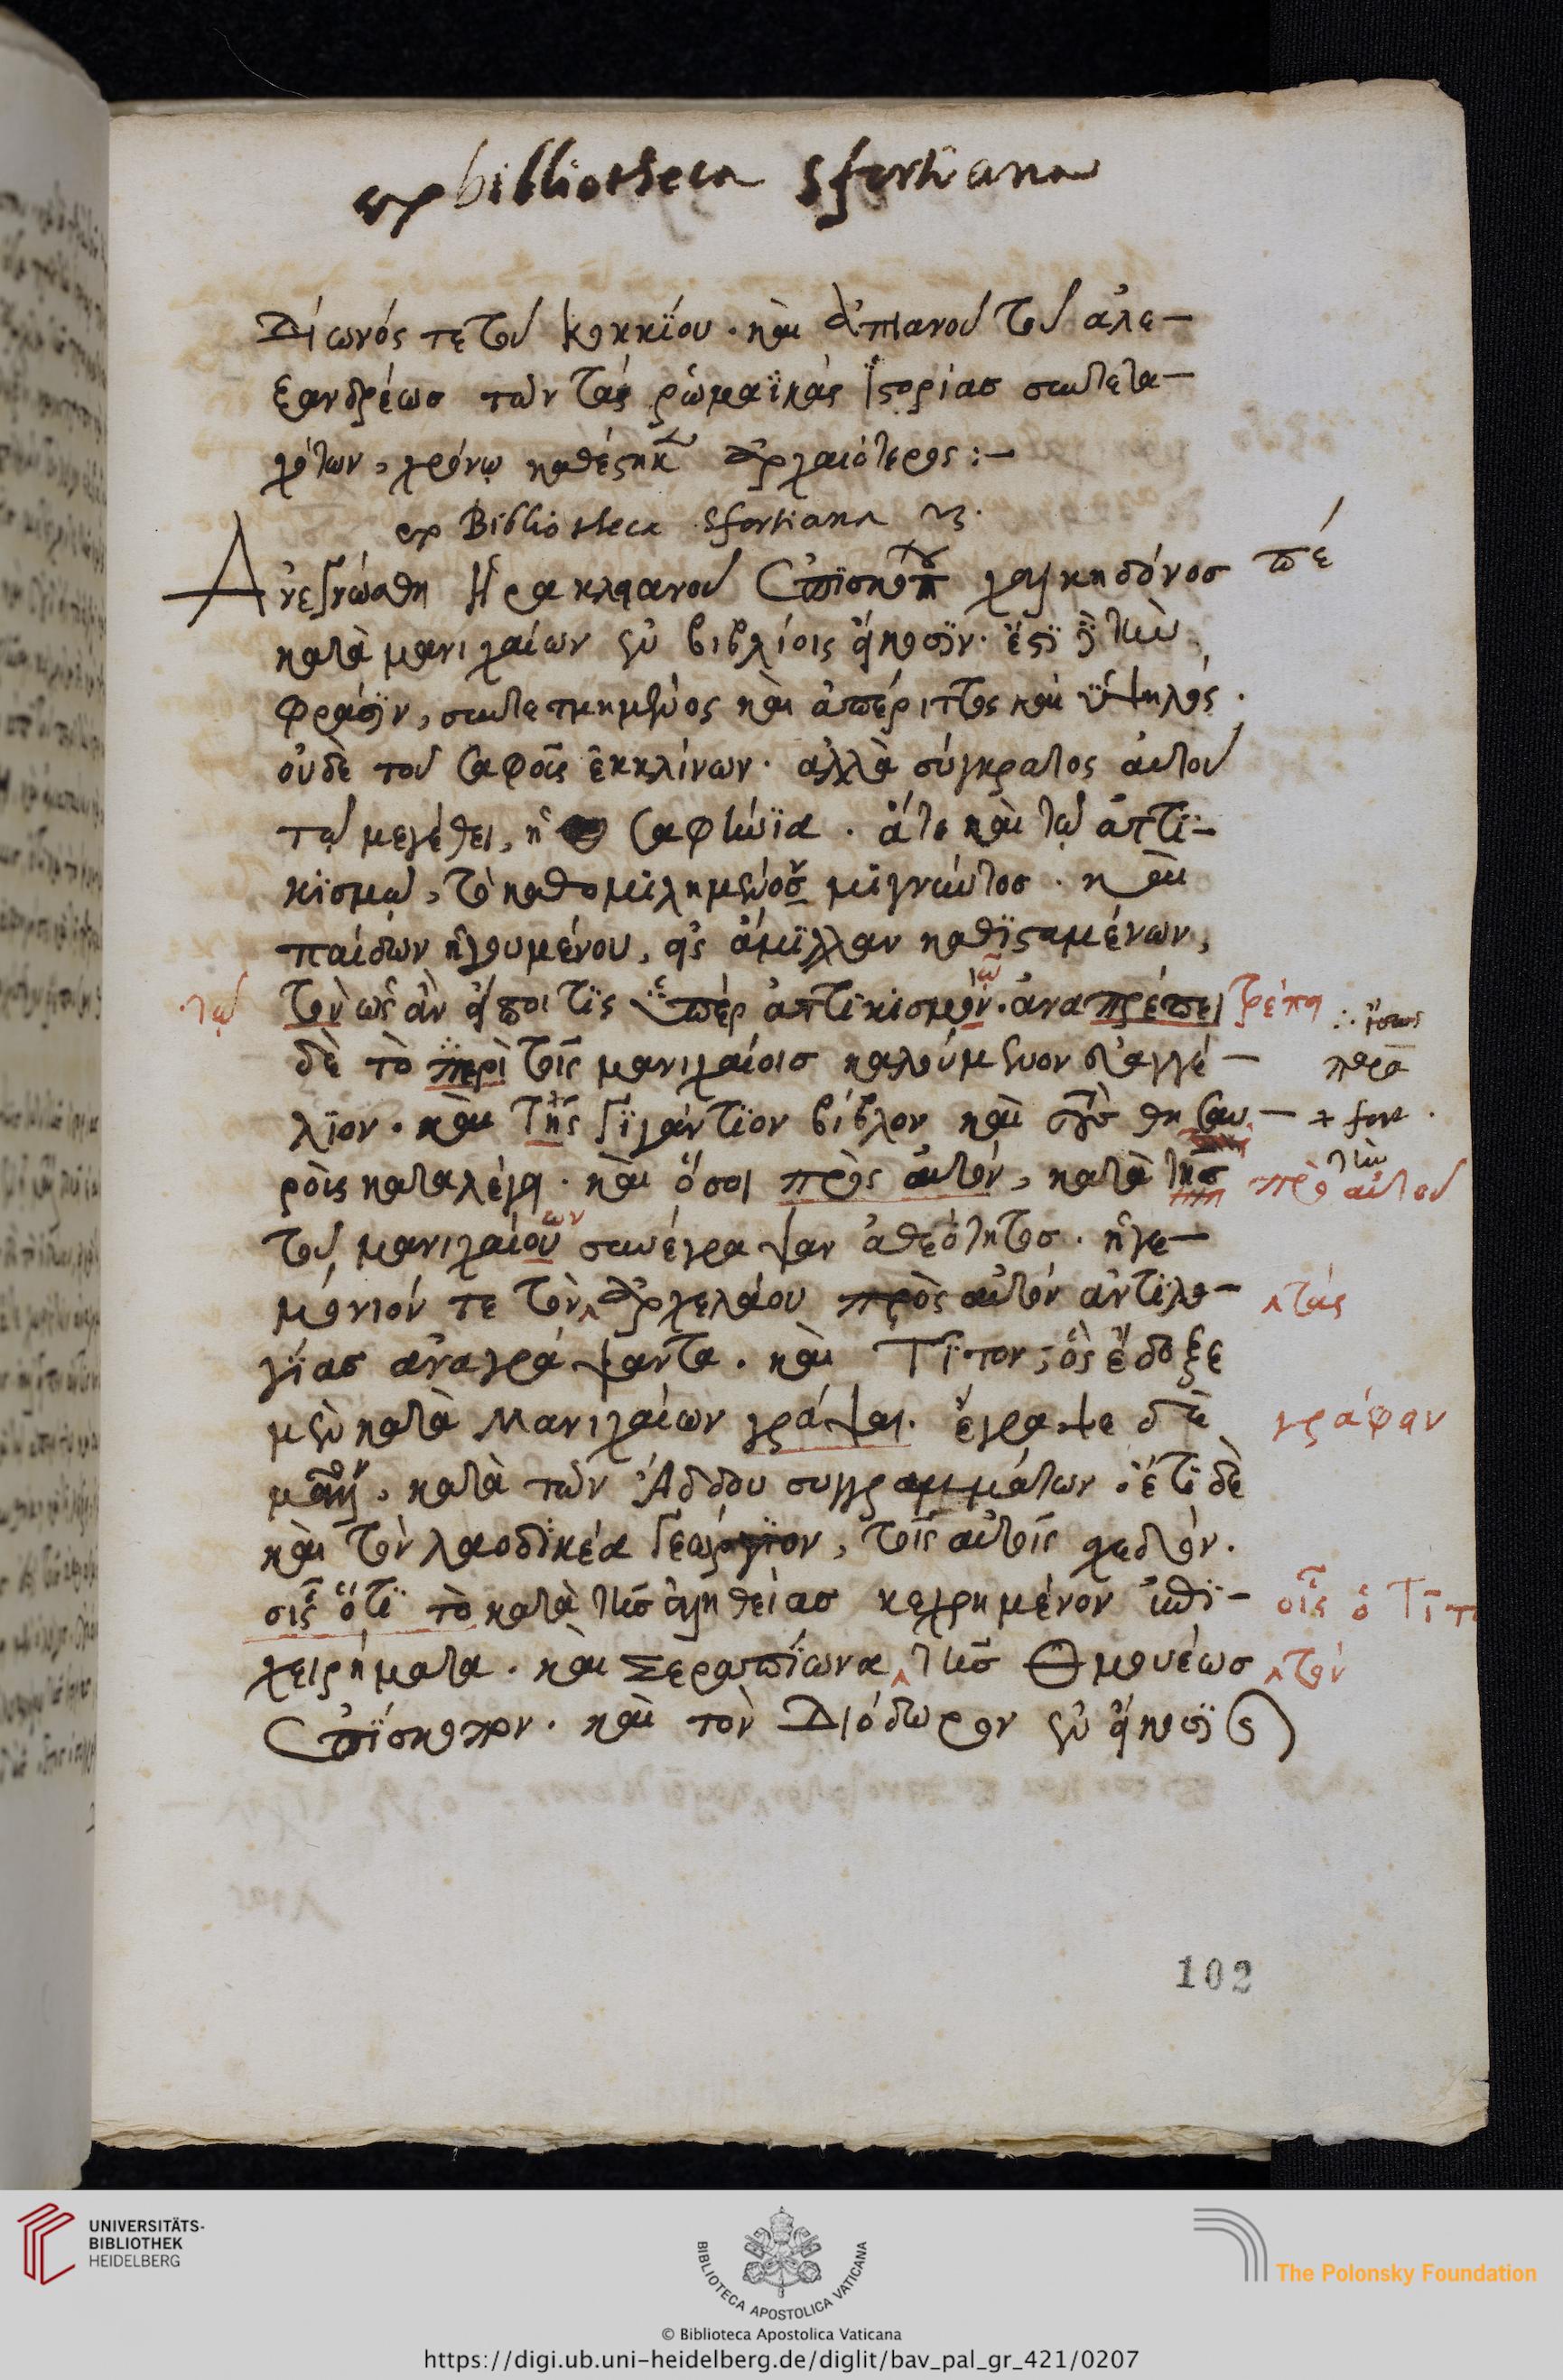 ex bibliotheca Sfortiana
Δίωνός τε τοῦ Κοκκΐου · καὶ ἀπιανοῦ τοῦ ἀλε-
ξανδρέωσ τῶν τὰς ῥωμαϊκὰς ἱστορίασ συντετα-
χότων, χρόνῳ καθέστηκεν ἀρχαιότερος :-
ex Bibliotheca Sfortiana
Ἀνεγνώσθη Ἡρακλειανοῦ ἐπισκόπου χαλκηδόνοσ πέ
κατὰ μανιχαίων ἐν βιβλίοις εἴκοσιν · ἔστι δὲ τὴν
φράσιν, συντετμημένος καὶ ἀπέριττος καὶ ὑψηλός ·
οὐδὲ τοῦ σαφοῦς ἐκκλίνων · ἀλλὰ σύγκρατος αὐτοῦ
τῷ μεγέθει, ἡ σαφήνϊα · ἅτε καὶ τῷ ἀττι-
κισμῷ, τὸ καθομιλημένον μϊγνύντοσ · καὶ
παίδων ἡγουμένου, εἰς ἅμιλλαν καθισταμένων,
τῷ τὸν ὡς ἂν εἴποι τις ὑπὲρ ἀττικισμὸν · ἀναπρέπει τρέπει ∴ ἴσως
δὲ τὸ περὶ τοῖς μανιχαίοισ καλούμενον εὐαγγέ- παρὰ
λϊον · καὶ τῆς Γιγάντιον βίβλον καὶ τοὺς θησαυ- + fort.
ροὺς καταλέγει · καὶ ὅσοι πρὸς αὐτὸν, κατὰ τῆσ τὴν πρὸ αὐτοῦ
τοῦ μανιχαίου ων συνέγραψαν ἀθεότητοσ · ἡγε-
μόνιόν τε τὸν ‸ ἀρχελάου πρὸς αὐτὸν ἀντιλο- ‸ τὰς
γίασ ἀναγράψαντα · καὶ Τίτον, ὃς ἔδοξε
μὲν κατὰ Μανιχαίων γράψαι · ἔγραψε δὲ γράφειν
μᾶλλον, κατὰ τῶν Ἄδδου συγγραμμάτων · ἔτι δὲ
καὶ τὸν λαοδικέα Γεώργϊον, τοῖς αὐτοῖς σχεδόν ·
σις ὅτι τὸ κατὰ τῆσ ἀληθείασ κεχρημένον ἐπι- οἷς ὁ Τίτ
χειρήματα · καὶ Σεραπΐωνα ‸ τῆσ Θμουέωσ ‸ τὸν
ἐπίσκοπον · καὶ τὸν Διόδωρον ἐν εἴκοσι
102
UNIVERSITÄTS-
BIBLIOTHEK
HEIDELBERG
BIBLIOTECA APOSTOLICA VATICANA
The Polonsky Foundation
© Biblioteca Apostolica Vaticana
https://digi.ub.uni-heidelberg.de/diglit/bav_pal_gr_421/0207